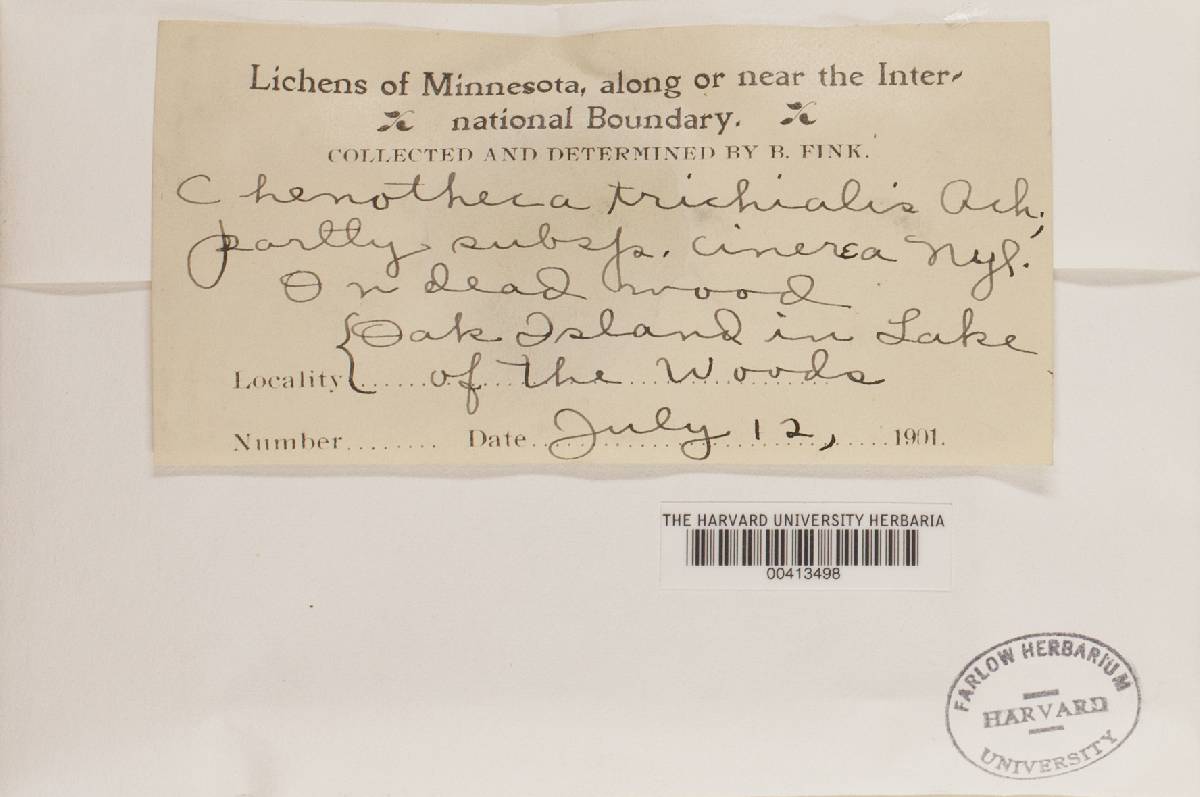 Lichens of Minnesota, along or near the Inter-
national Boundary.
COLLECTED AND DETERMINED BY B. FINK.
Chenotheca trichialis Ach.,
partly subsp. cinerea Nyl.
On dead wood
Oak Island in Lake
Locality......of the Woods
Number........ Date..July 12,......1901.
THE HARVARD UNIVERSITY HERBARIA
00413498
FARLOW HERBARIUM
HARVARD
UNIVERSITY